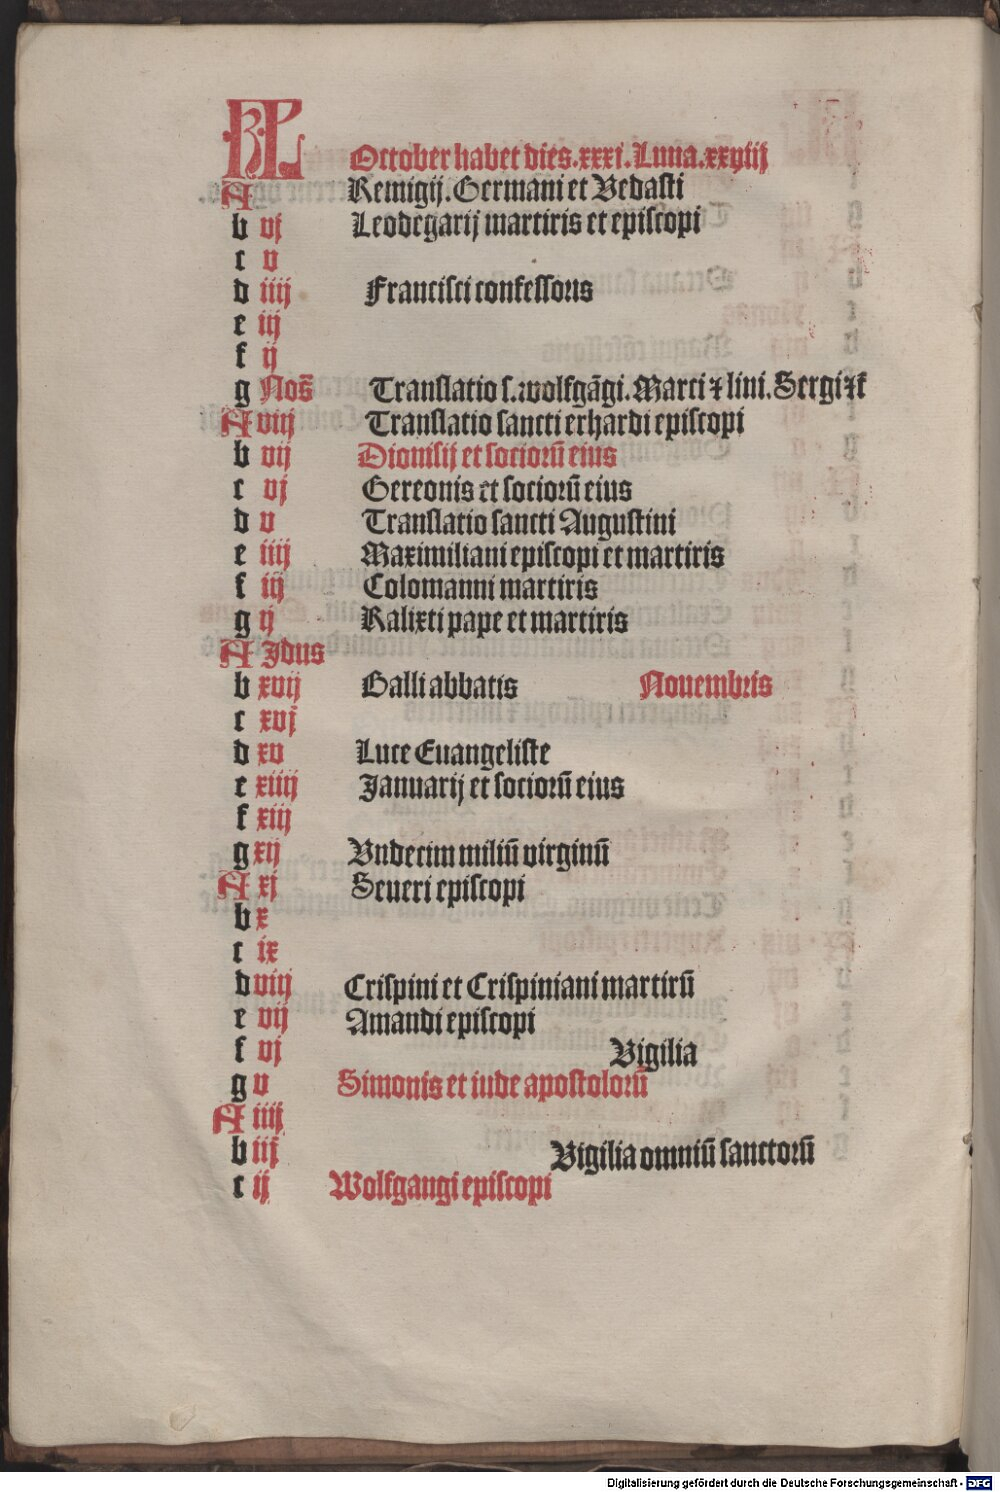 KL October habet dies.xxxi.Luna.xxviiij
A Remigij.Germani et Vedasti
b vj Leodegarij martiris et episcopi
c v
d iiij Francisci confessoris
e iij
f ij
g Noñ Translatio s.wolfgāgi.Marci ⁊ lini.Sergi ⁊ć
A viij Translatio sancti erhardi episcopi
b vij Dionisij et sociorū eius
c vj Gereonis et sociorū eius
d v Translatio sancti Augustini
e iiij Maximiliani episcopi et martiris
f iij Colomanni martiris
g ij Kalixti pape et martiris
A Jdus
b xvij Galli abbatis Nouembris
c xvj
d xv Luce Euangeliste
e xiiij Januarij et sociorū eius
f xiij
g xij Vndecim miliū virginū
A xj Seueri episcopi
b x
c ix
d viij Crispini et Crispiniani martirū
e vij Amandi episcopi
f vj Vigilia
g v Simonis et iude apostolorū
A iiij
b iij Vigilia omniū sanctorū
c ij Wolfgangi episcopi
Digitalisierung gefördert durch die Deutsche Forschungsgemeinschaft - DFG